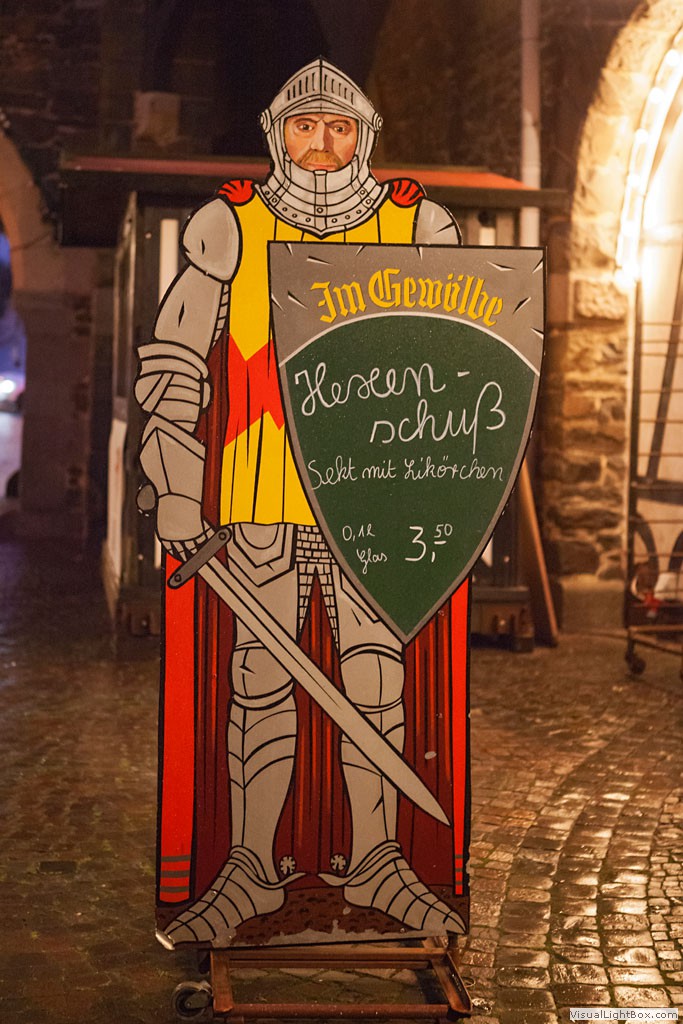 Im Gewölbe
Hexen-
schuß
Sekt mit Likörchen
0,1l
Glas
3,50
VisualLightBox.com